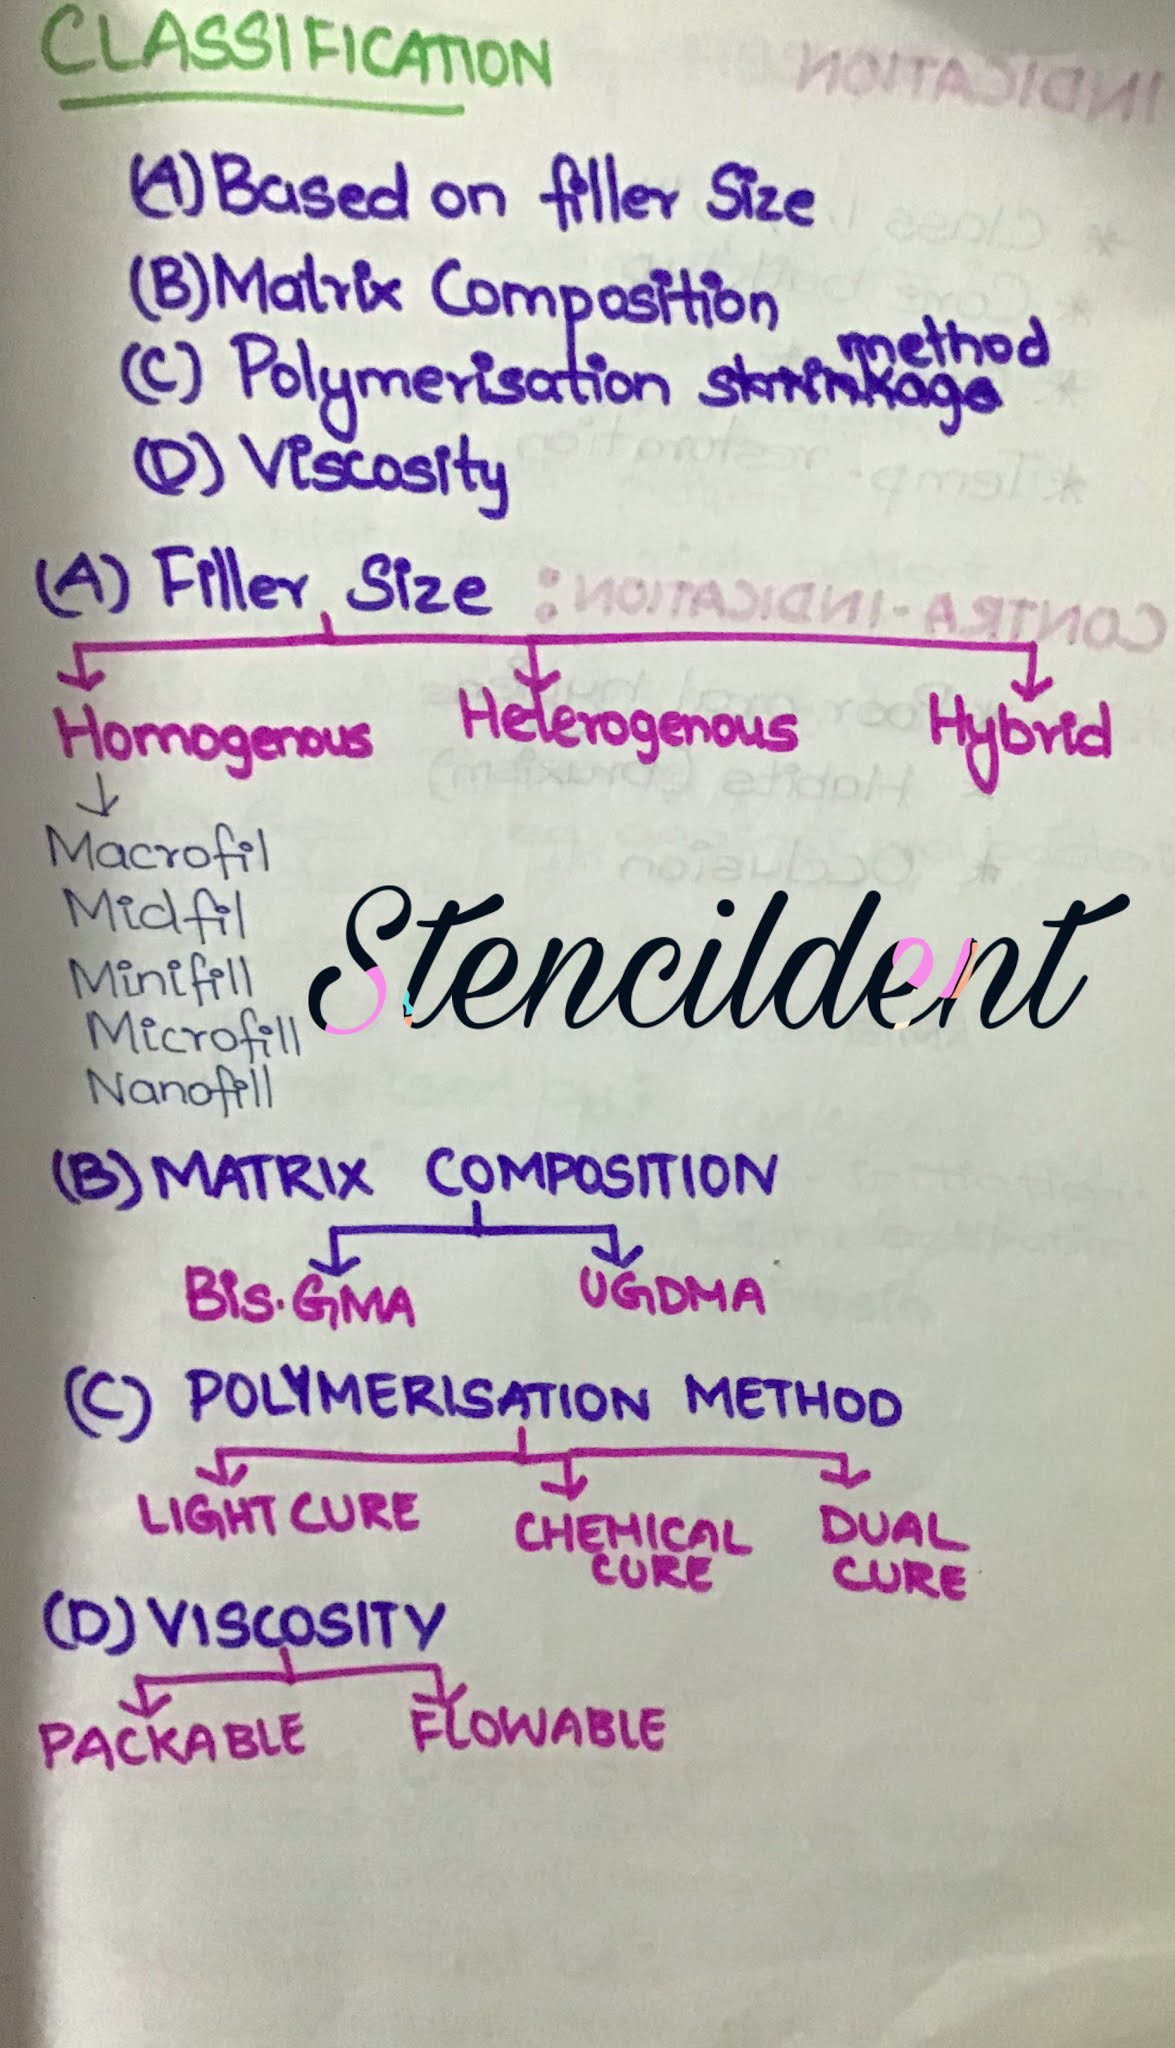 CLASSIFICATION
(A) Based on filler Size
(B) Matrix Composition
method
(C) Polymerisation shrinkage
(D) Viscosity
(A) Filler Size
Homogenous Heterogenous Hybrid
Macrofil
Midfil
Minifill
Microfill
Nanofill
Stencildent
(B) MATRIX COMPOSITION
Bis.GMA UGDMA
(C) POLYMERISATION METHOD
LIGHT CURE CHEMICAL CURE DUAL CURE
(D) VISCOSITY
PACKABLE FLOWABLE